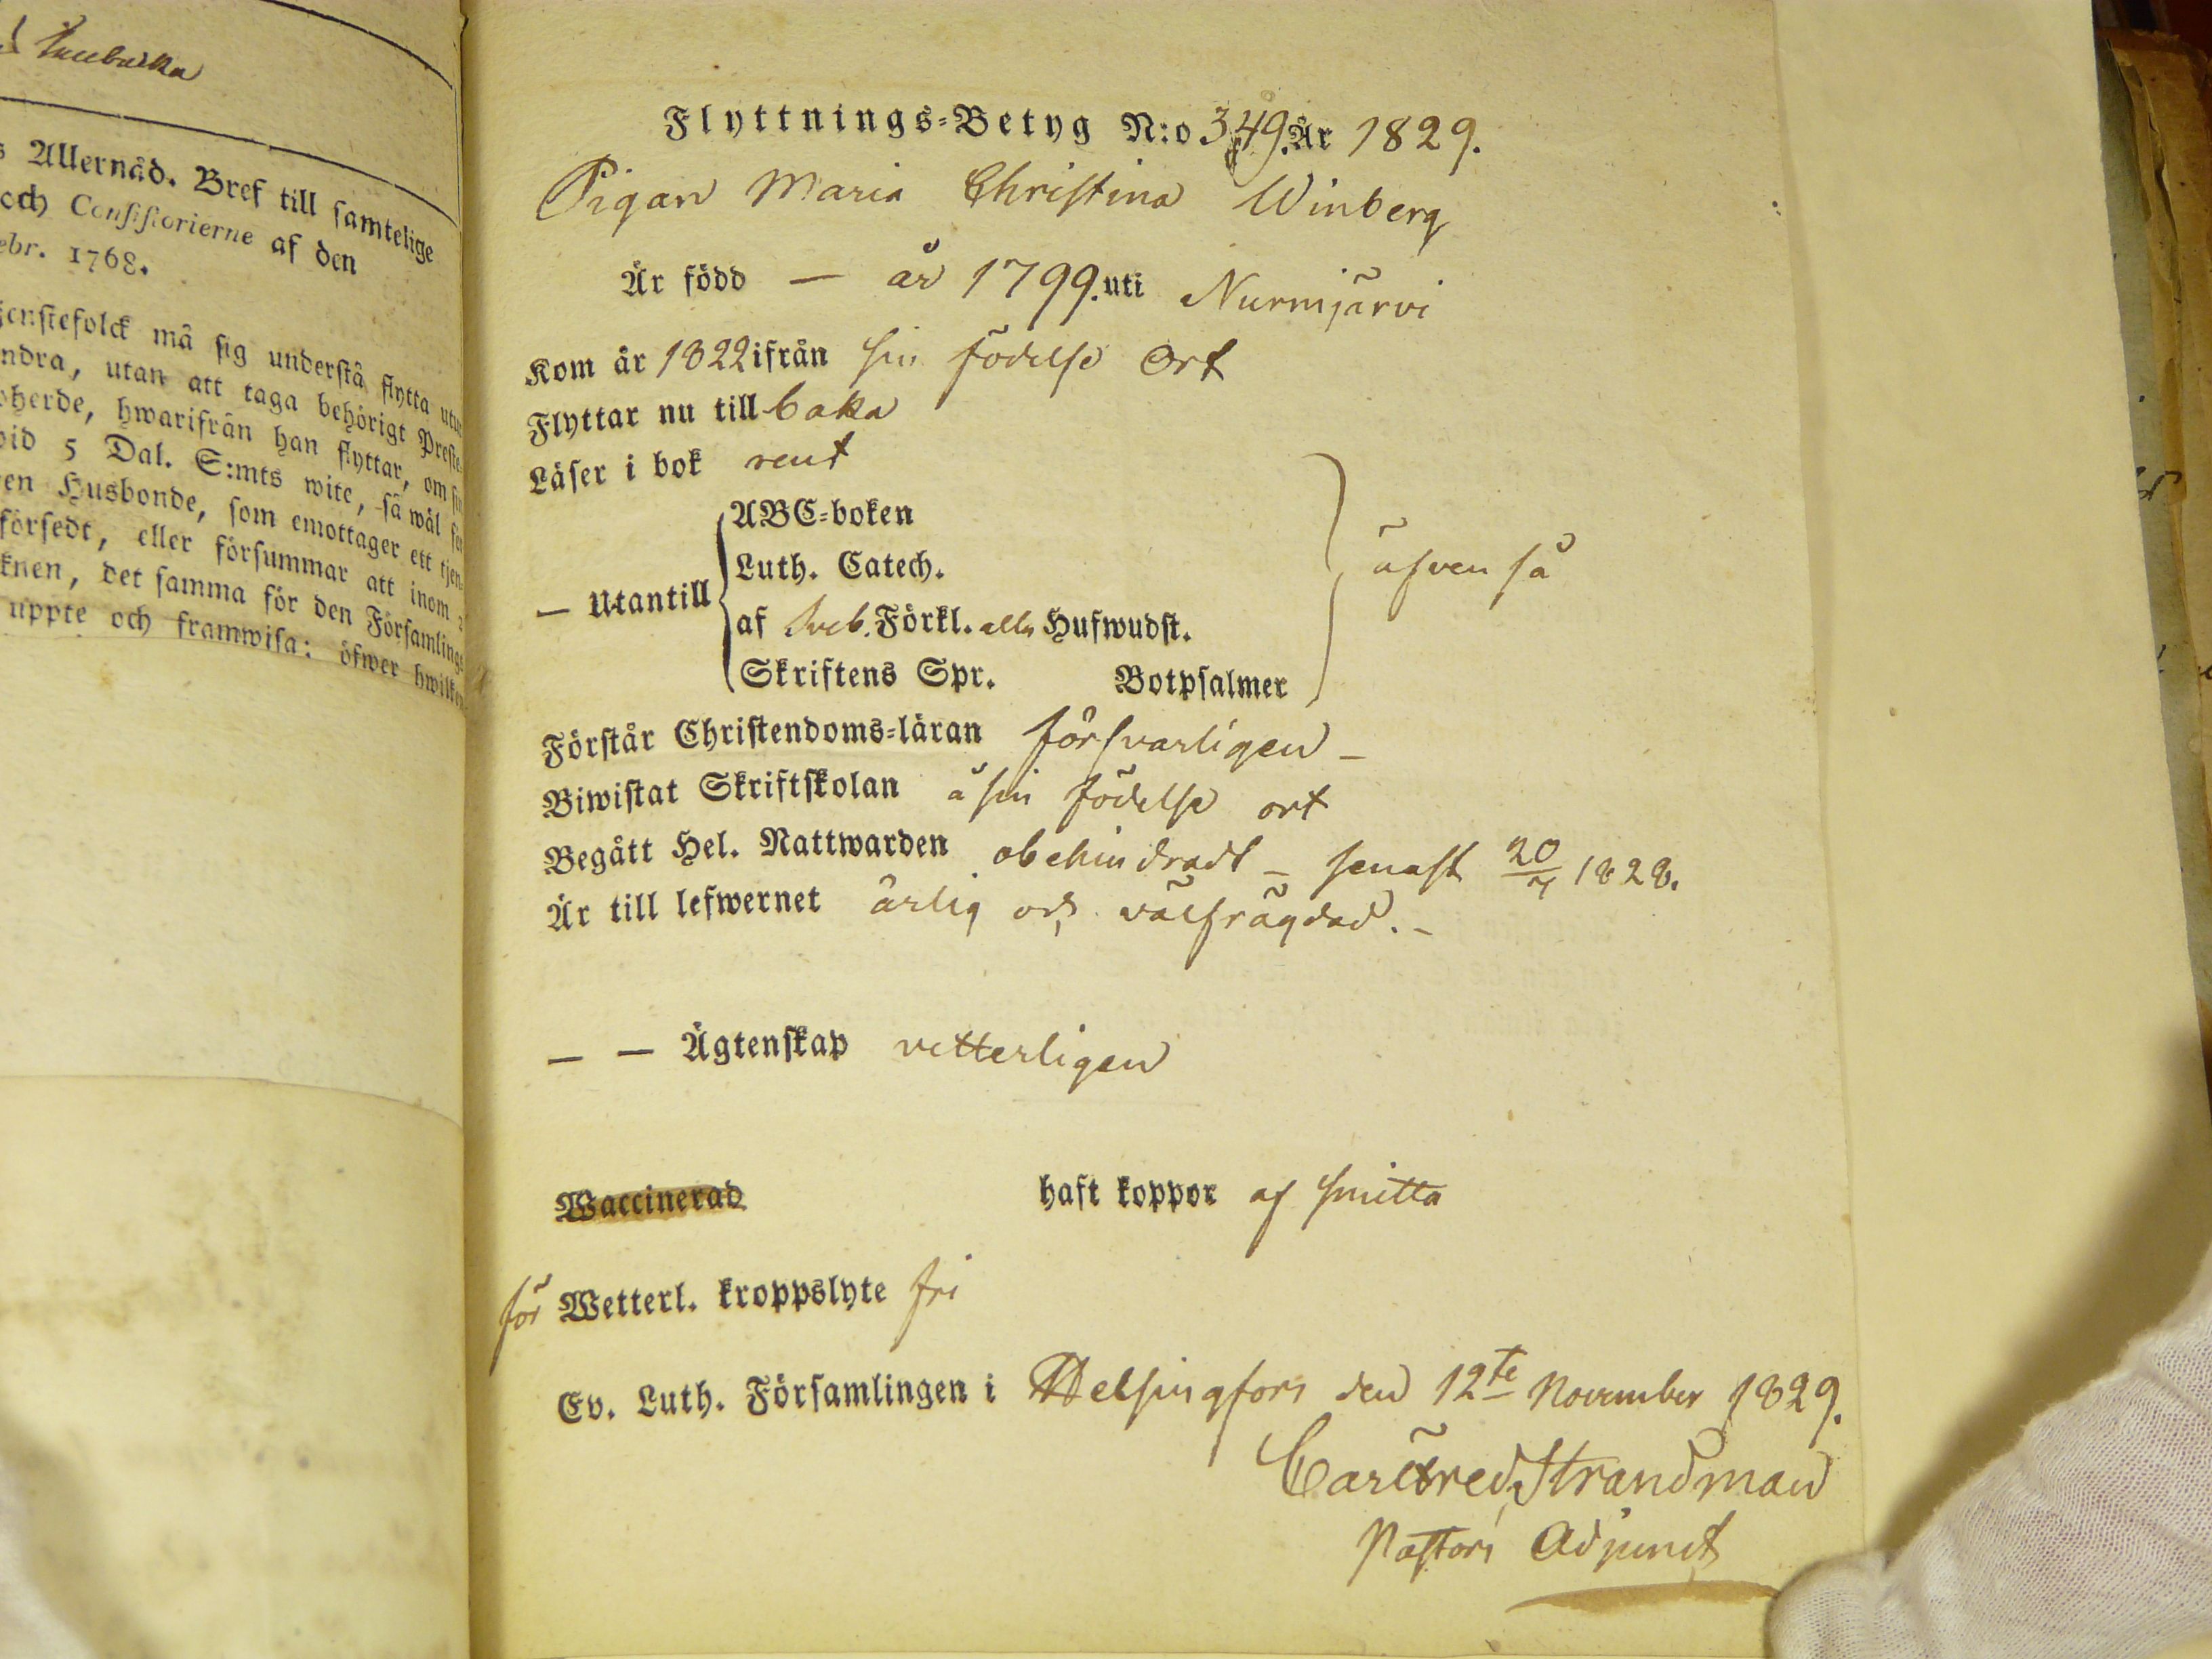 Tuubakka
s Allernåd. Bref till samtelige
och Consistorierne af den
ebr. 1768.
jenstefolck må sig understå flytta utur
ndra, utan att taga behörigt Preste-
oherde, hwarifrån han flyttar, om
vid 5 Dal. S:mts wite, så wäl för
en Husbonde, som emottager ett tjen-
försedt, eller försummar att inom 2
knen, det samma för den Församlings
uppte och framwisa: öfwer hwilken
Flyttnings-Betyg N:o 349. År 1829.
Pigan Maria Christina Winberg
Är född — år 1799. uti Nurmijärvi
Kom år 1822 ifrån sin födelse Ort
Flyttar nu till baka
Läser i bok rent
ABC-boken
Luth. Catech.
— Utantill äfven så
af Sveb. Förkl. alla Hufwudst.
Skriftens Spr. Botpsalmer
Förstår Christendoms-läran försvarligen –
Biwistat Skriftskolan å sin födelse ort
Begått Hel. Nattwarden obehindradt – senast 20/7 1828.
Är till lefwernet ärlig och välfrägdad. –
— — Ägtenskap vetterligen
Waccinerad haft koppor af smitta
för Wetterl. kroppslyte fri
Ev. Luth. Församlingen i Helsingfors den 12te November 1829.
Carl Fred. Strandman
Pastors Adjunct